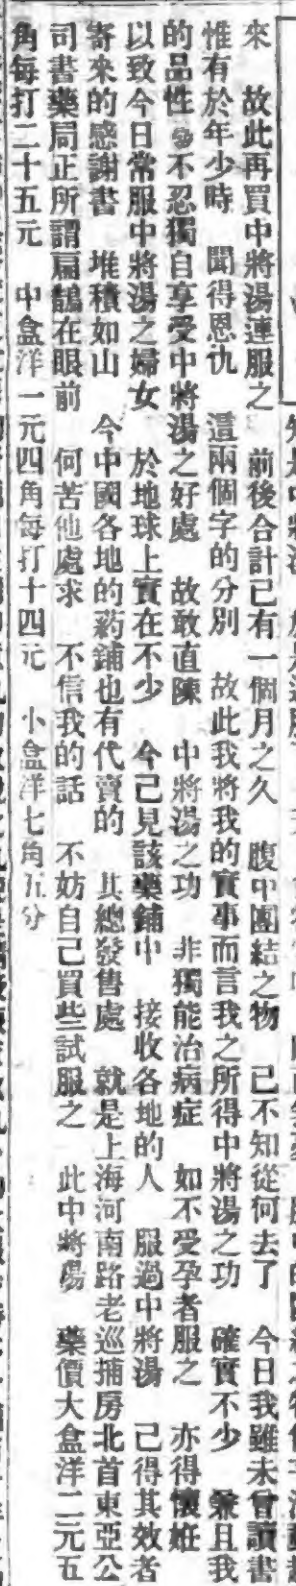 來　故此再買中將湯連服之　前後合計已有一個月之久　腹中團結之物　已不知從何去了　今日我雖未曾讀書
惟有於年少時　聞得恩仇　這兩個字的分別　故此我將我的實事而言我之所得中將湯之功　確實不少　兼且我
的品性　不忍獨自享受中將湯之好處　故敢直陳　中將湯之功　非獨能治病症　如不受孕者服之　亦得懷姙
以致今日常服中將湯之婦女　於地球上實在不少　今已見該藥鋪中　接收各地的人　服過中將湯　已得其效者
寄來的感謝書　堆積如山　今中國各地的葯鋪也有代賣的　其總發售處　就是上海河南路老巡捕房北首東亞公
司書藥局正所謂扁鵲在眼前　何苦他處求　不信我的話　不妨自己買些試服之　此中將湯　藥價大盒洋二元五
角每打二十五元　中盒洋一元四角每打十四元　小盒洋七角五分